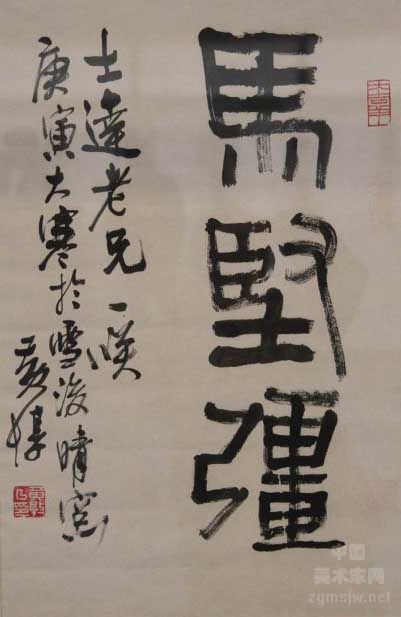 馬堅彊
士達老兄一咲
庚寅大寒於雪後晴窗
黃惇
中国
美术家网
zgmsjw.net